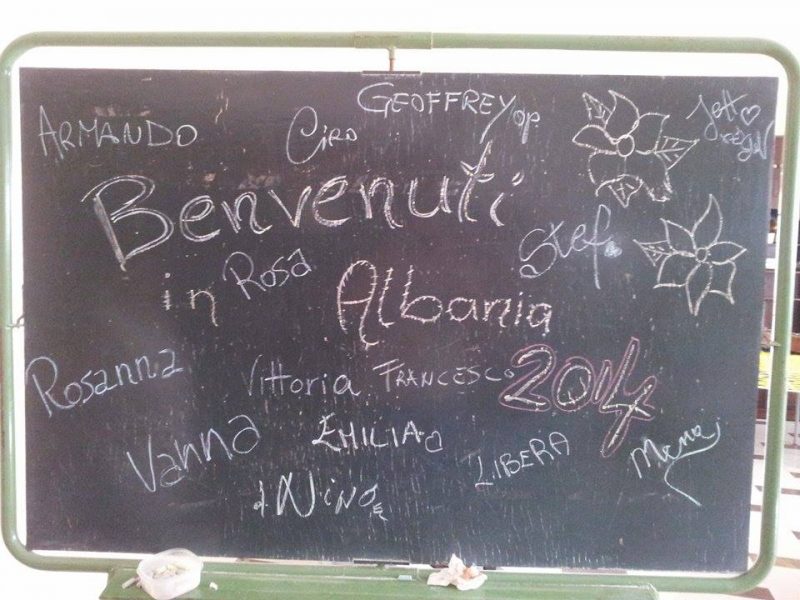 GEOFFREY op
ARMANDO
Ciro
Benvenuti
Stef
in
Rosa
Albania
Rosanna
Vittoria
FRANCESCO
2014
Vanna
EMILIA
LIBERA
Nino